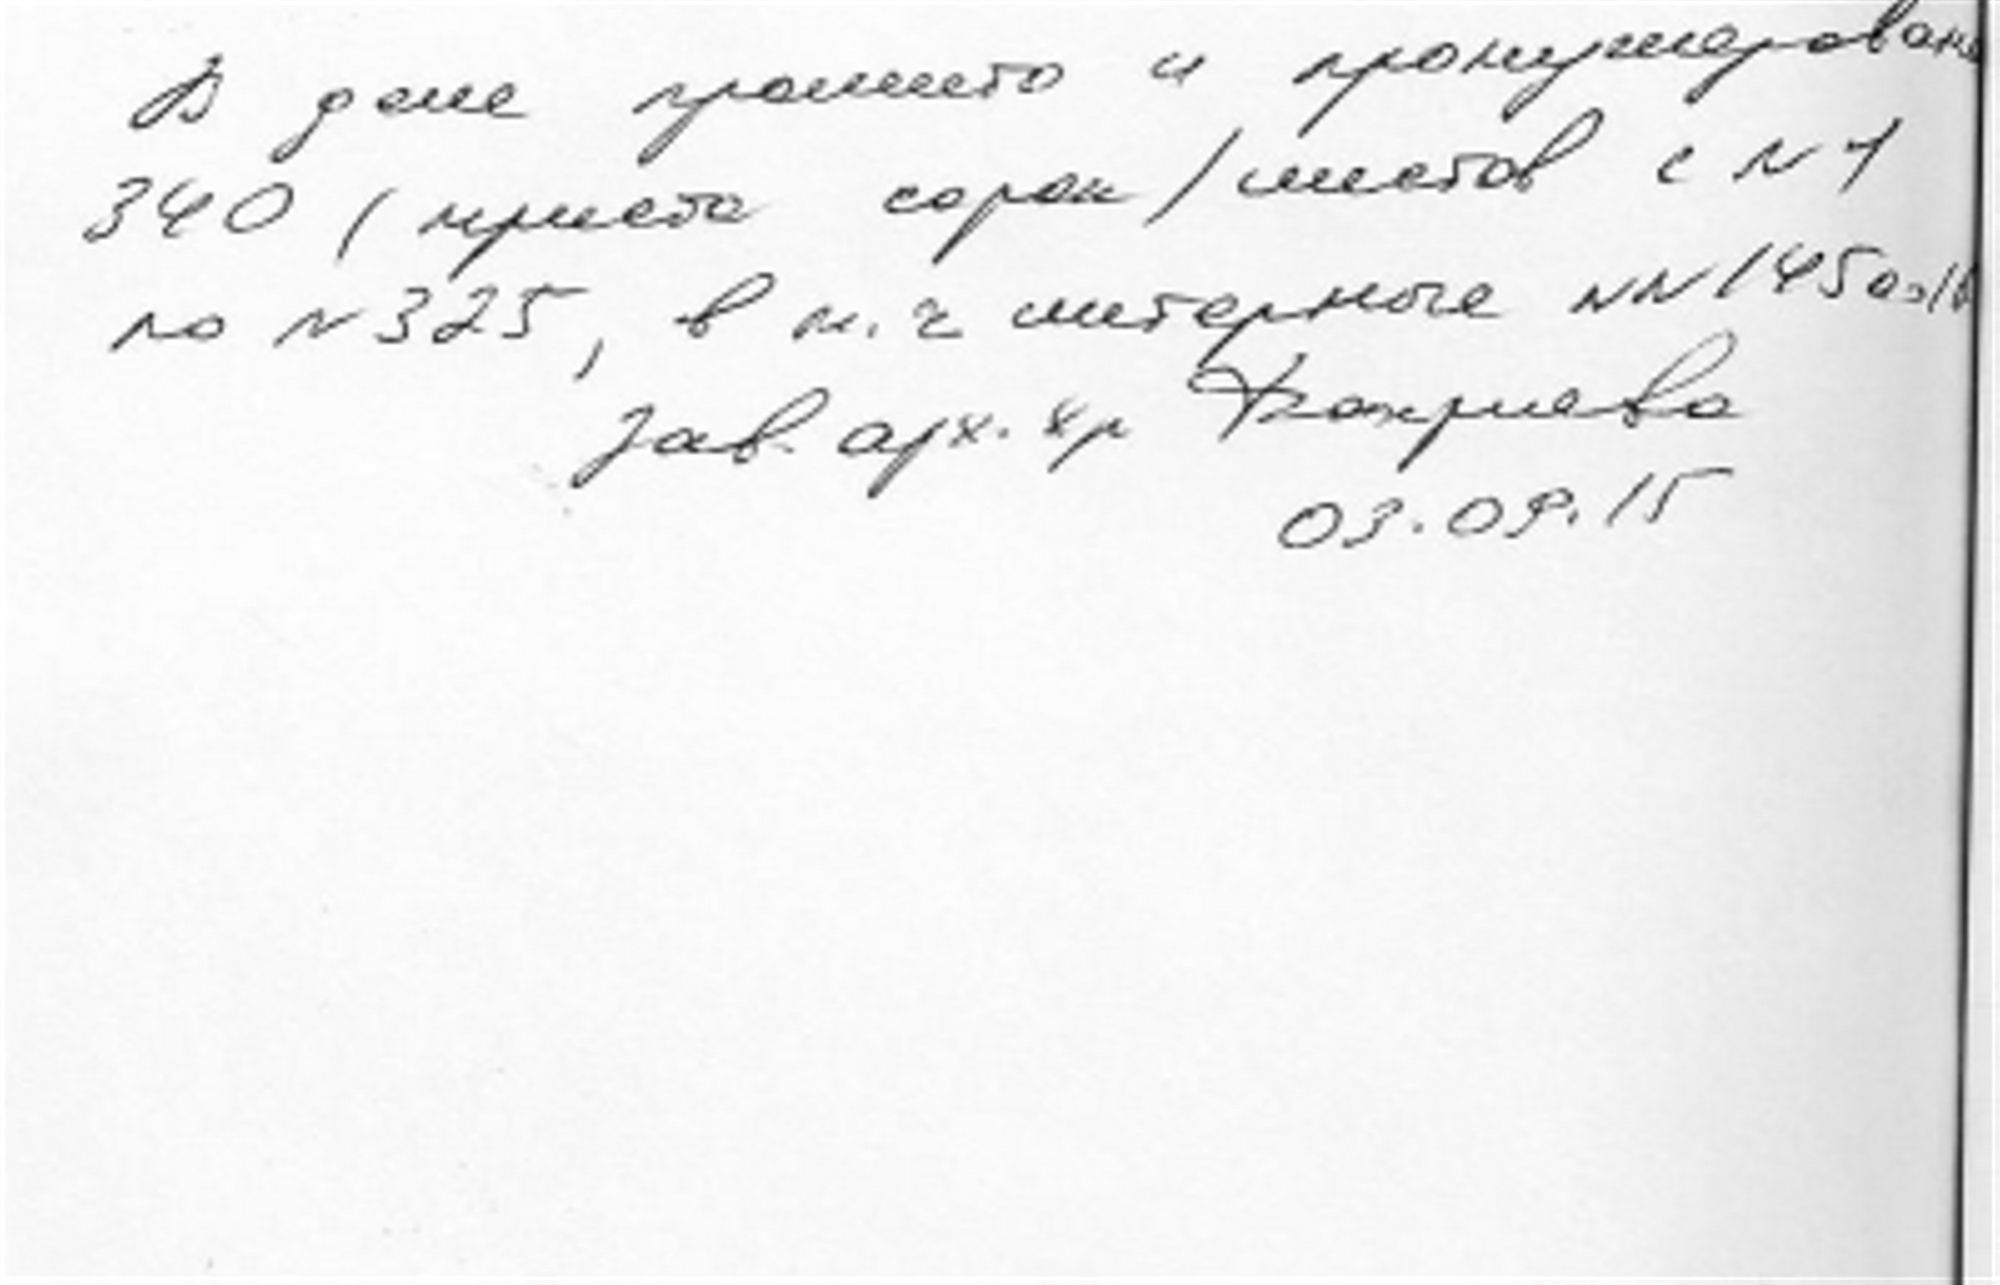 В деле прошито и пронумерован
340 (триста сорок) листов с N 1
по N 325, в т.ч литерные NN 145а,
зав. арх. хр
03.09.15